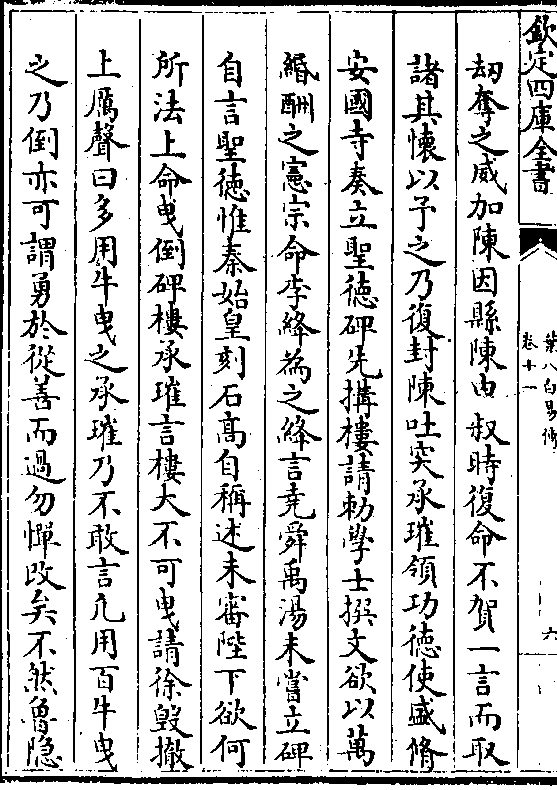 欽定四庫全書
葉八白易傳
卷十一
六
刼奪之威加陳因縣陳申叔時復命不賀一言而取
諸其懷以予之乃復封陳吐突承璀領功德使盛脩
安國寺奏立聖德碑先搆樓請勅學士撰文欲以萬
緡酬之憲宗命李絳為之絳言堯舜禹湯未嘗立碑
自言聖徳惟秦始皇刻石髙自稱述未審陛下欲何
所法上命曳倒碑樓承璀言樓大不可曳請徐毀撤
上厲聲曰多用牛曳之承璀乃不敢言凢用百牛曳
之乃倒亦可謂勇於從善而過勿憚改矣不然魯隐